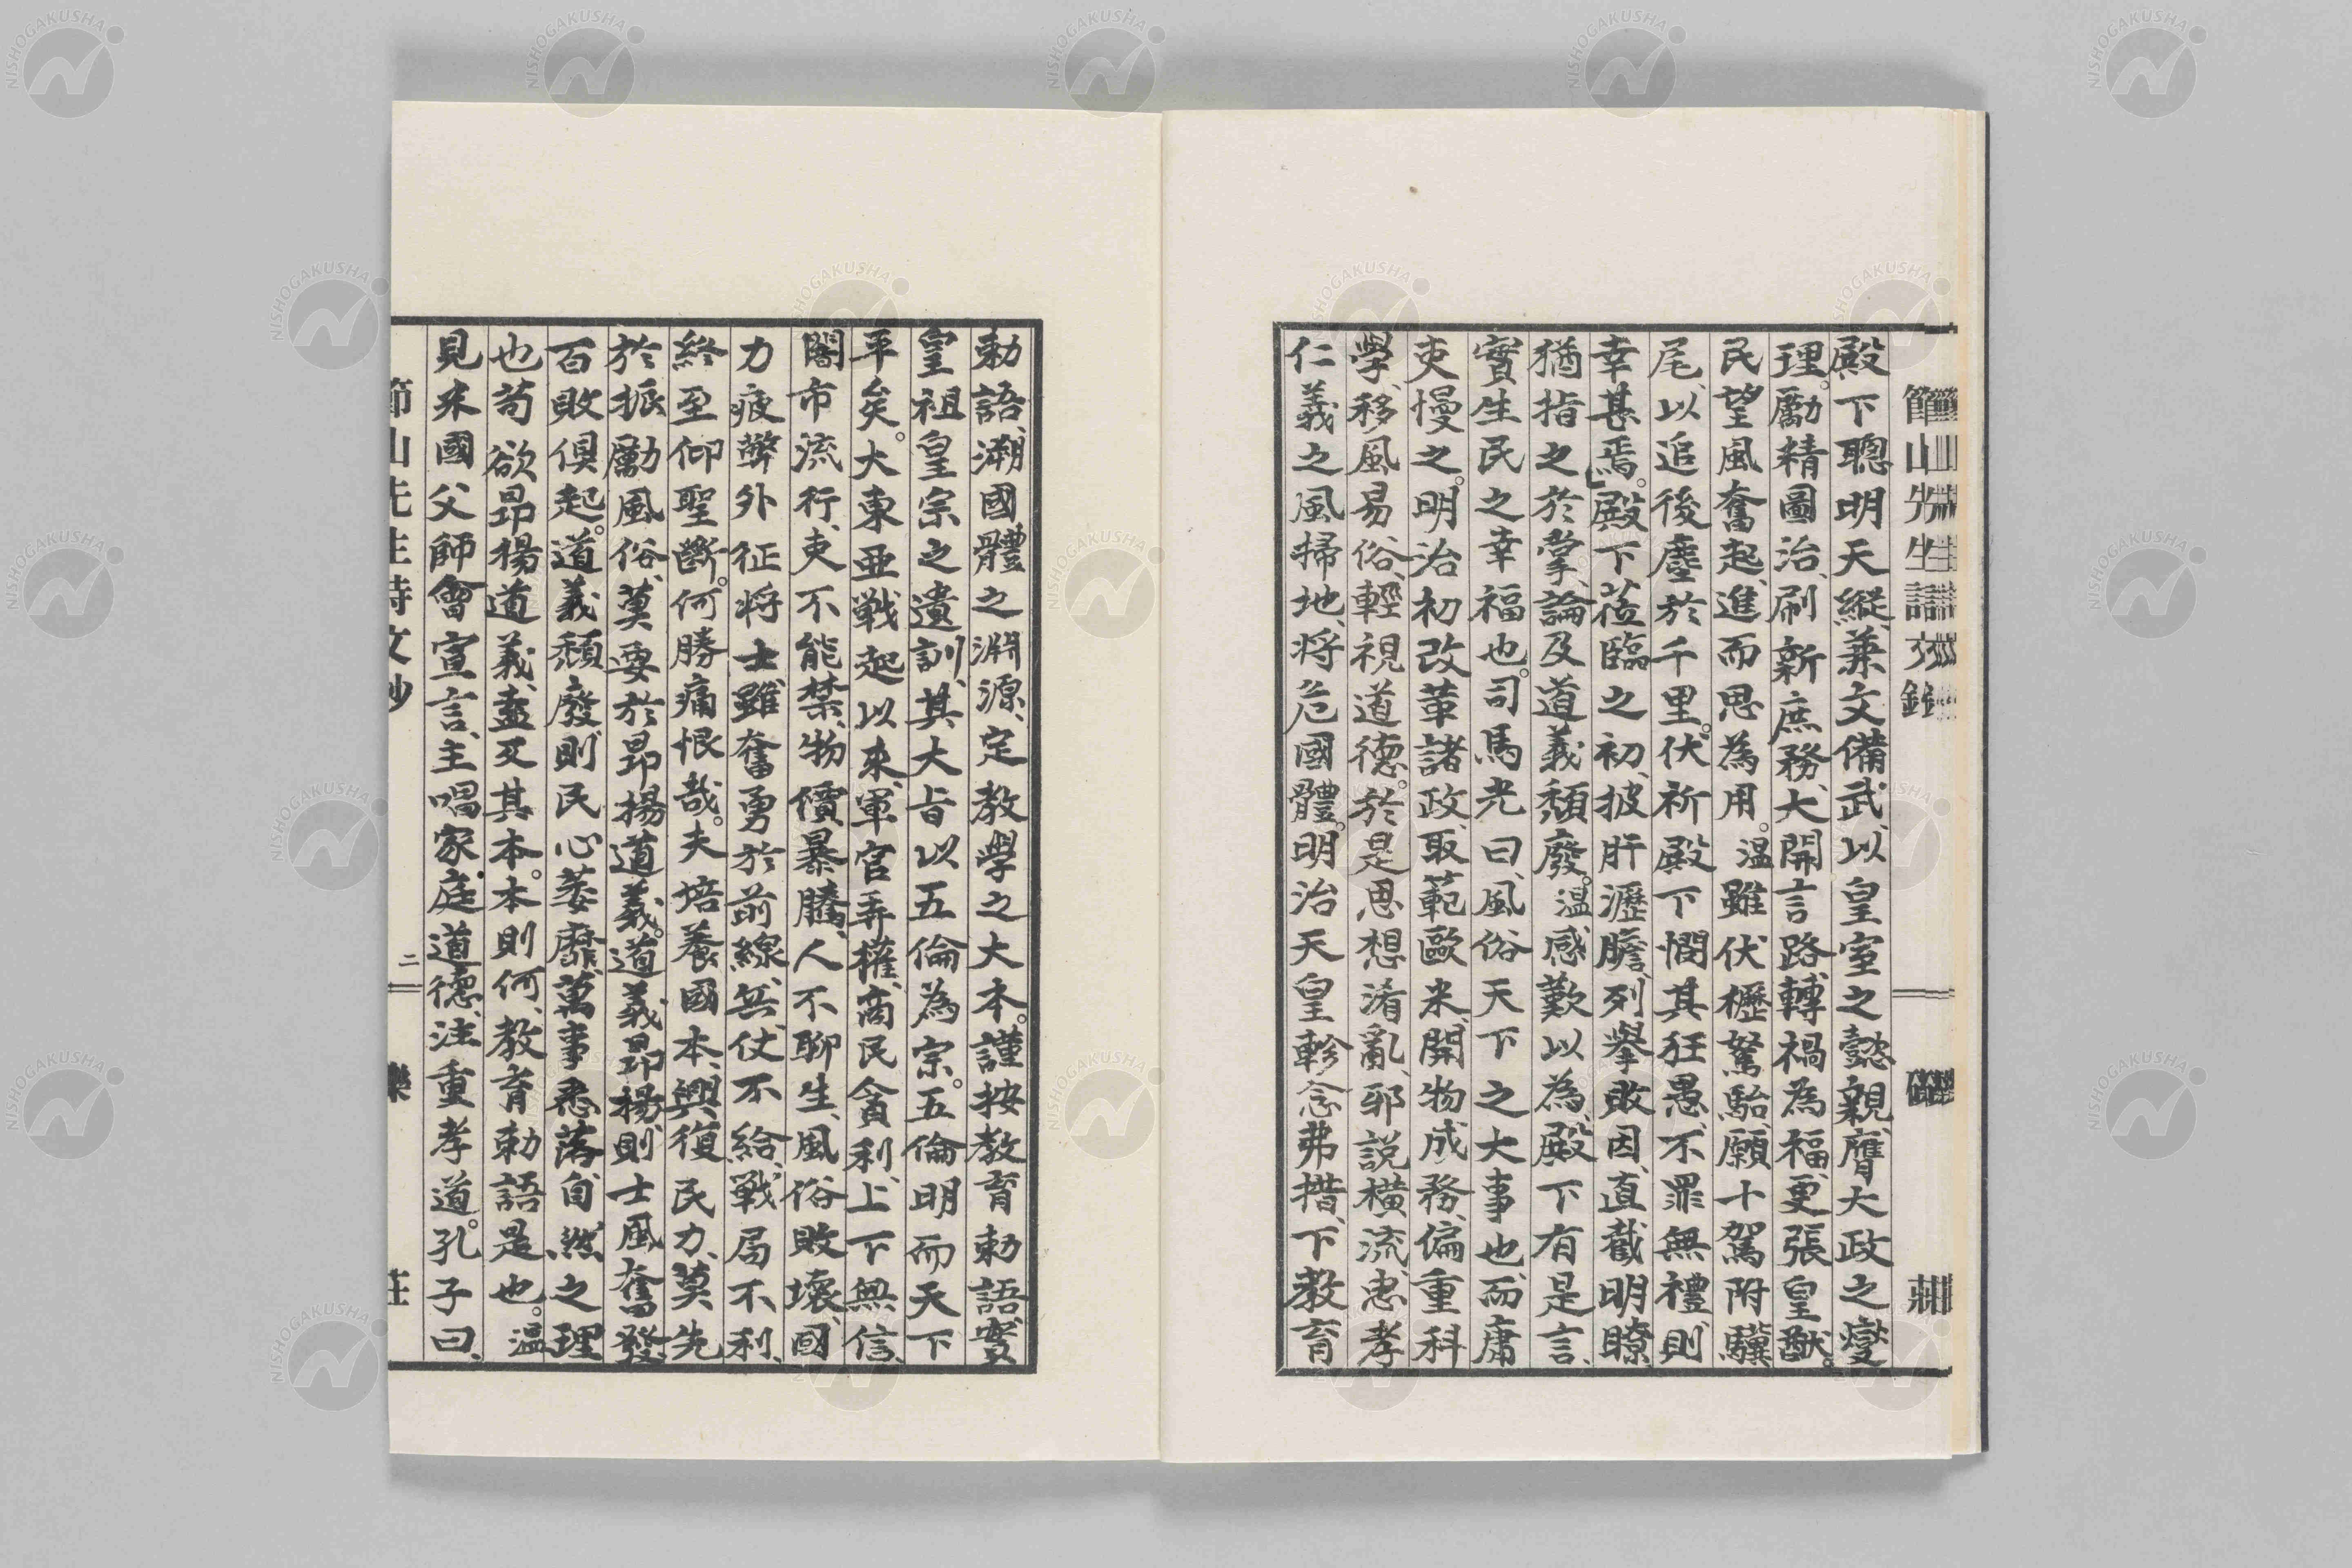 殿下聰明天縱、兼文備武、以皇室之懿親、膺大政之燮
理。勵精圖治、刷新庶務、大開言路、轉禍為福、更張皇猷。
民望風奮起、進而思為用。温雖伏櫪駑駘、願十駕附驥
尾、以追後塵於千里。伏祈殿下憫其狂愚、不罪無禮、則
幸甚焉。」殿下莅臨之初、披肝瀝膽、列擧敗因、直截明瞭、
猶指之於掌、論及道義頽廢。温感歎以為、殿下有是言、
實生民之幸福也。司馬光曰、風俗天下之大事也、而庸
吏慢之。明治初改革諸政、取範歐米、開物成務、偏重科
學、移風易俗、輕視道德。於是思想淆亂、邪説橫流、忠孝
仁義之風掃地、將危國體。明治天皇軫念弗措、下教育
勅語、溯國體之淵源、定教學之大本。謹按教育勅語、實
皇祖皇宗之遺訓、其大旨以五倫為宗。五倫明而天下
平矣。大東亜戦起以來、軍官弄權、商民貪利、上下無信、
闇市流行、吏不能禁、物價暴騰、人不聊生、風俗敗壞、國
力疲弊、外征將士、雖奮勇於前線、兵仗不給、戰局不利、
終至仰聖斷。何勝痛恨哉。夫培養國本、興復民力、莫先
於振勵風俗、莫要於昂揚道義。道義昂揚、則士風奮發、
百敗倶起。道義頽廢、則民心萎靡、萬事悉落、自然之理
也。苟欲昂揚道義、盍反其本。本則何、教育勅語是也。温
見米國父師會宣言、主唱家庭道德、注重孝道。孔子曰、
節山先生詩文鈔
二
樂
莊